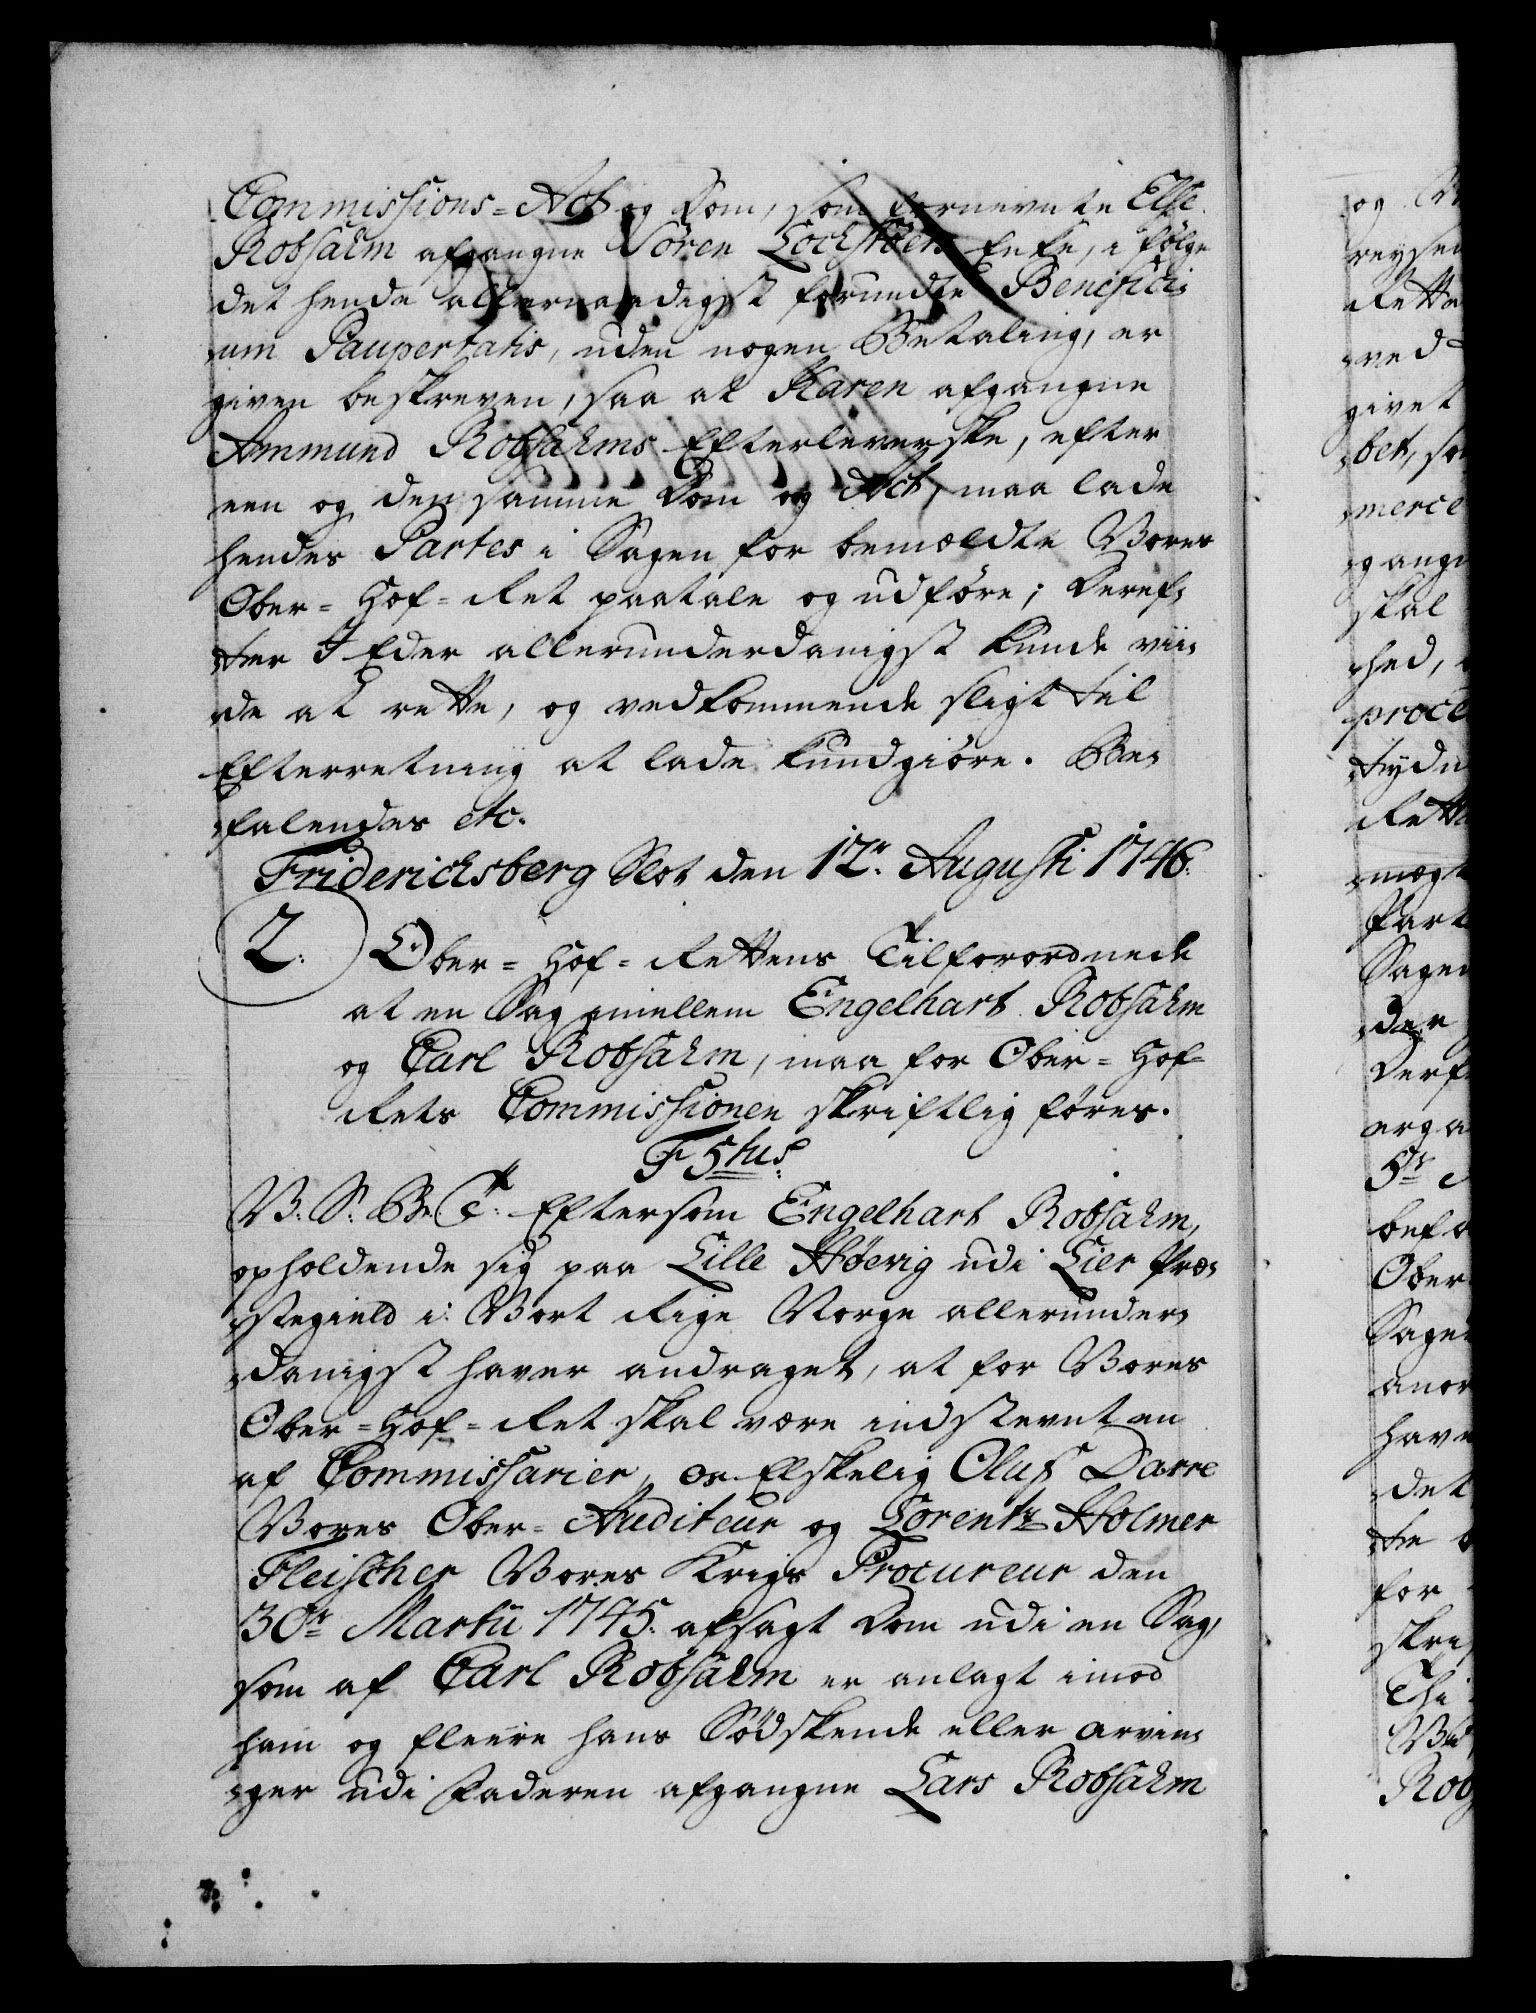 Commissions=Act og Dom, som fornevnte Else
Robsahm afgangne Sören Lochstöers Enke, i følge
det hende allernaadigst forundte Benefici-
um Paupertatis, uden nogen Betaling, er
given beskreven, saa at Karen afgangne
Ammund Robsahms Efterleverske, efter
een og den samme Dom og Act, maa lade
hendes Partes i Sagen for bemeldte Vores
Ober=Hof=Ret paatale og udføre; Deref-
ter I Eder allerunderdanigst kunde vii-
de at rette, og vedkommende sligt til
Efterretning at lade kundgiøre. Be-
falendes etc.
Fridericksberg Slot den 12te Augusti 1746.
2. Ober=Hof=Rettens Tilforordnede
at en Sag imellem Engelhart Robsahm
og Carl Robsahm, maa for Ober=Hof=
Rets Commissionen skriftlig føres.
F 5tus
V. S. B. T. Eftersom Engelhart Robsahm,
opholdende sig paa Lille Høevig udi Lier Præ-
stegield i Vort Rige Norge allerunder-
danigst haver andraget, at for Vores
Ober=Hof=Ret skal være indstevnt en
af Commissarier, Os Elskelig Oluf Darre
Vores Ober=Auditeur og Lorentz Holmer
Fleischer Vores Krigs Procureur den
30te Martii 1745. afsagt Dom udi en Sag,
som af Carl Robsahm er anlagt imod
ham og fleere hans Södskende eller Arvin-
ger udi Faderen afgangne Lars Robsahm